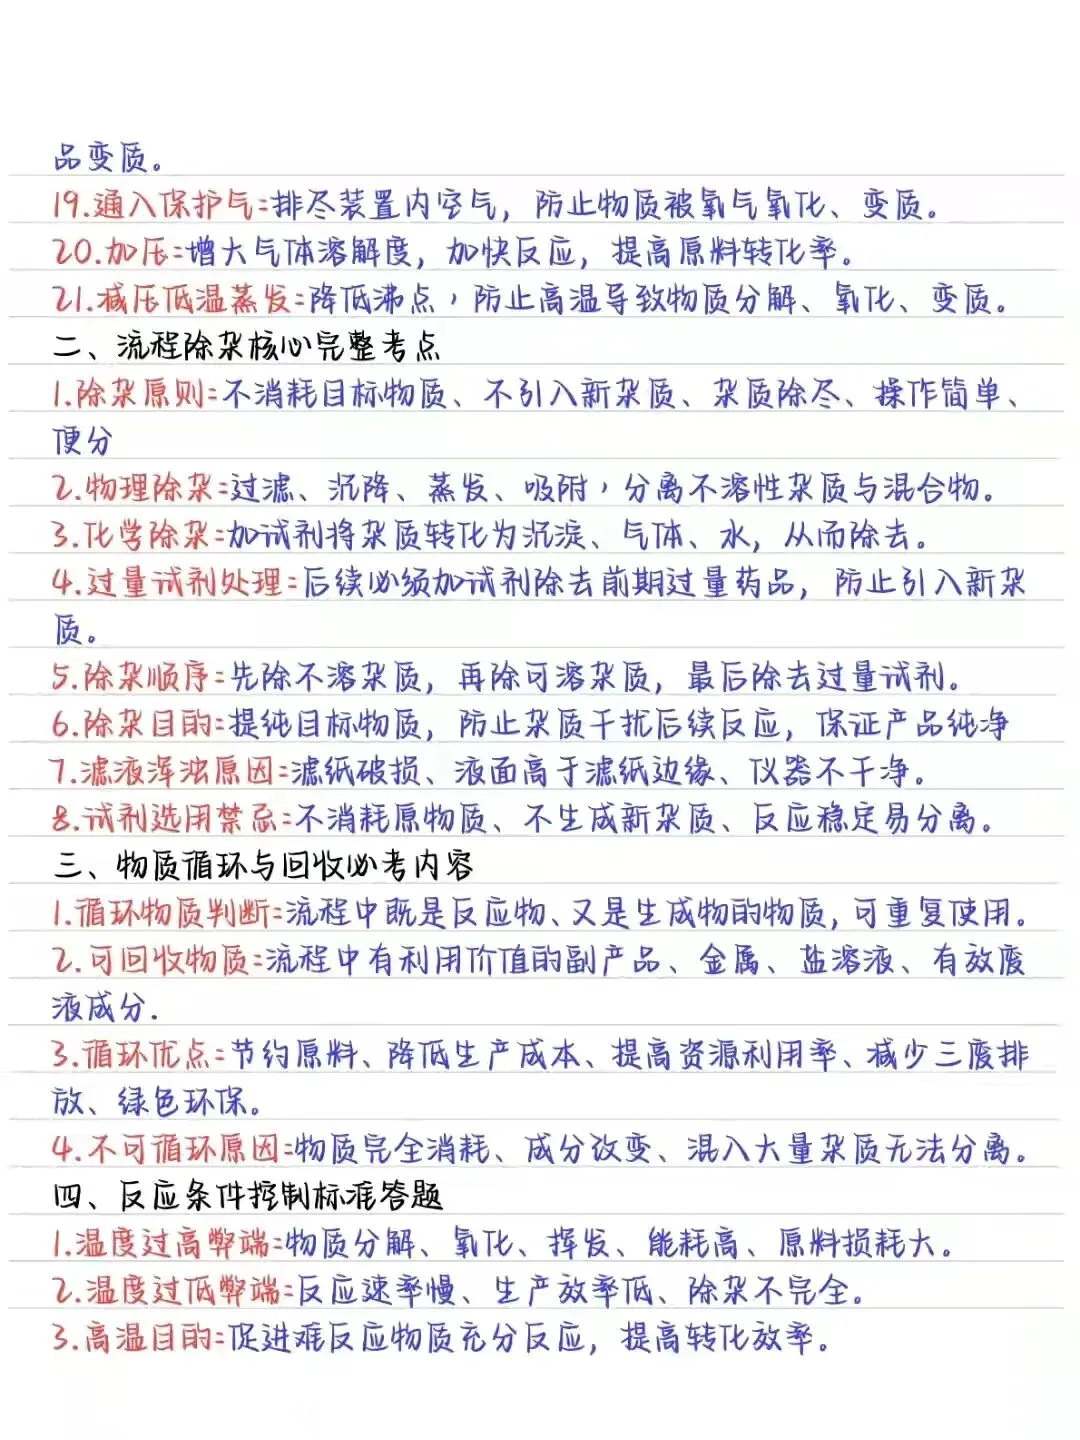 品变质。
19.通入保护气:排尽装置内空气，防止物质被氧气氧化、变质。
20.加压:增大气体溶解度，加快反应，提高原料转化率。
21.减压低温蒸发:降低沸点，防止高温导致物质分解、氧化、变质。
二、流程除杂核心完整考点
1.除杂原则:不消耗目标物质、不引入新杂质、杂质除尽、操作简单、
便分
2.物理除杂:过滤、沉降、蒸发、吸附，分离不溶性杂质与混合物。
3.化学除杂:加试剂将杂质转化为沉淀、气体、水，从而除去。
4.过量试剂处理:后续必须加试剂除去前期过量药品，防止引入新杂
质。
5.除杂顺序:先除不溶杂质，再除可溶杂质，最后除去过量试剂。
6.除杂目的:提纯目标物质，防止杂质干扰后续反应，保证产品纯净
7.滤液浑浊原因:滤纸破损、液面高于滤纸边缘、仪器不干净。
8.试剂选用禁忌:不消耗原物质、不生成新杂质、反应稳定易分离。
三、物质循环与回收必考内容
1.循环物质判断:流程中既是反应物、又是生成物的物质,可重复使用。
2.可回收物质:流程中有利用价值的副产品、金属、盐溶液、有效废
液成分.
3.循环优点:节约原料、降低生产成本、提高资源利用率、减少三废排
放、绿色环保。
4.不可循环原因:物质完全消耗、成分改变、混入大量杂质无法分离。
四、反应条件控制标准答题
1.温度过高弊端:物质分解、氧化、挥发、能耗高、原料损耗大。
2.温度过低弊端:反应速率慢、生产效率低、除杂不完全。
3.高温目的:促进难反应物质充分反应，提高转化效率。